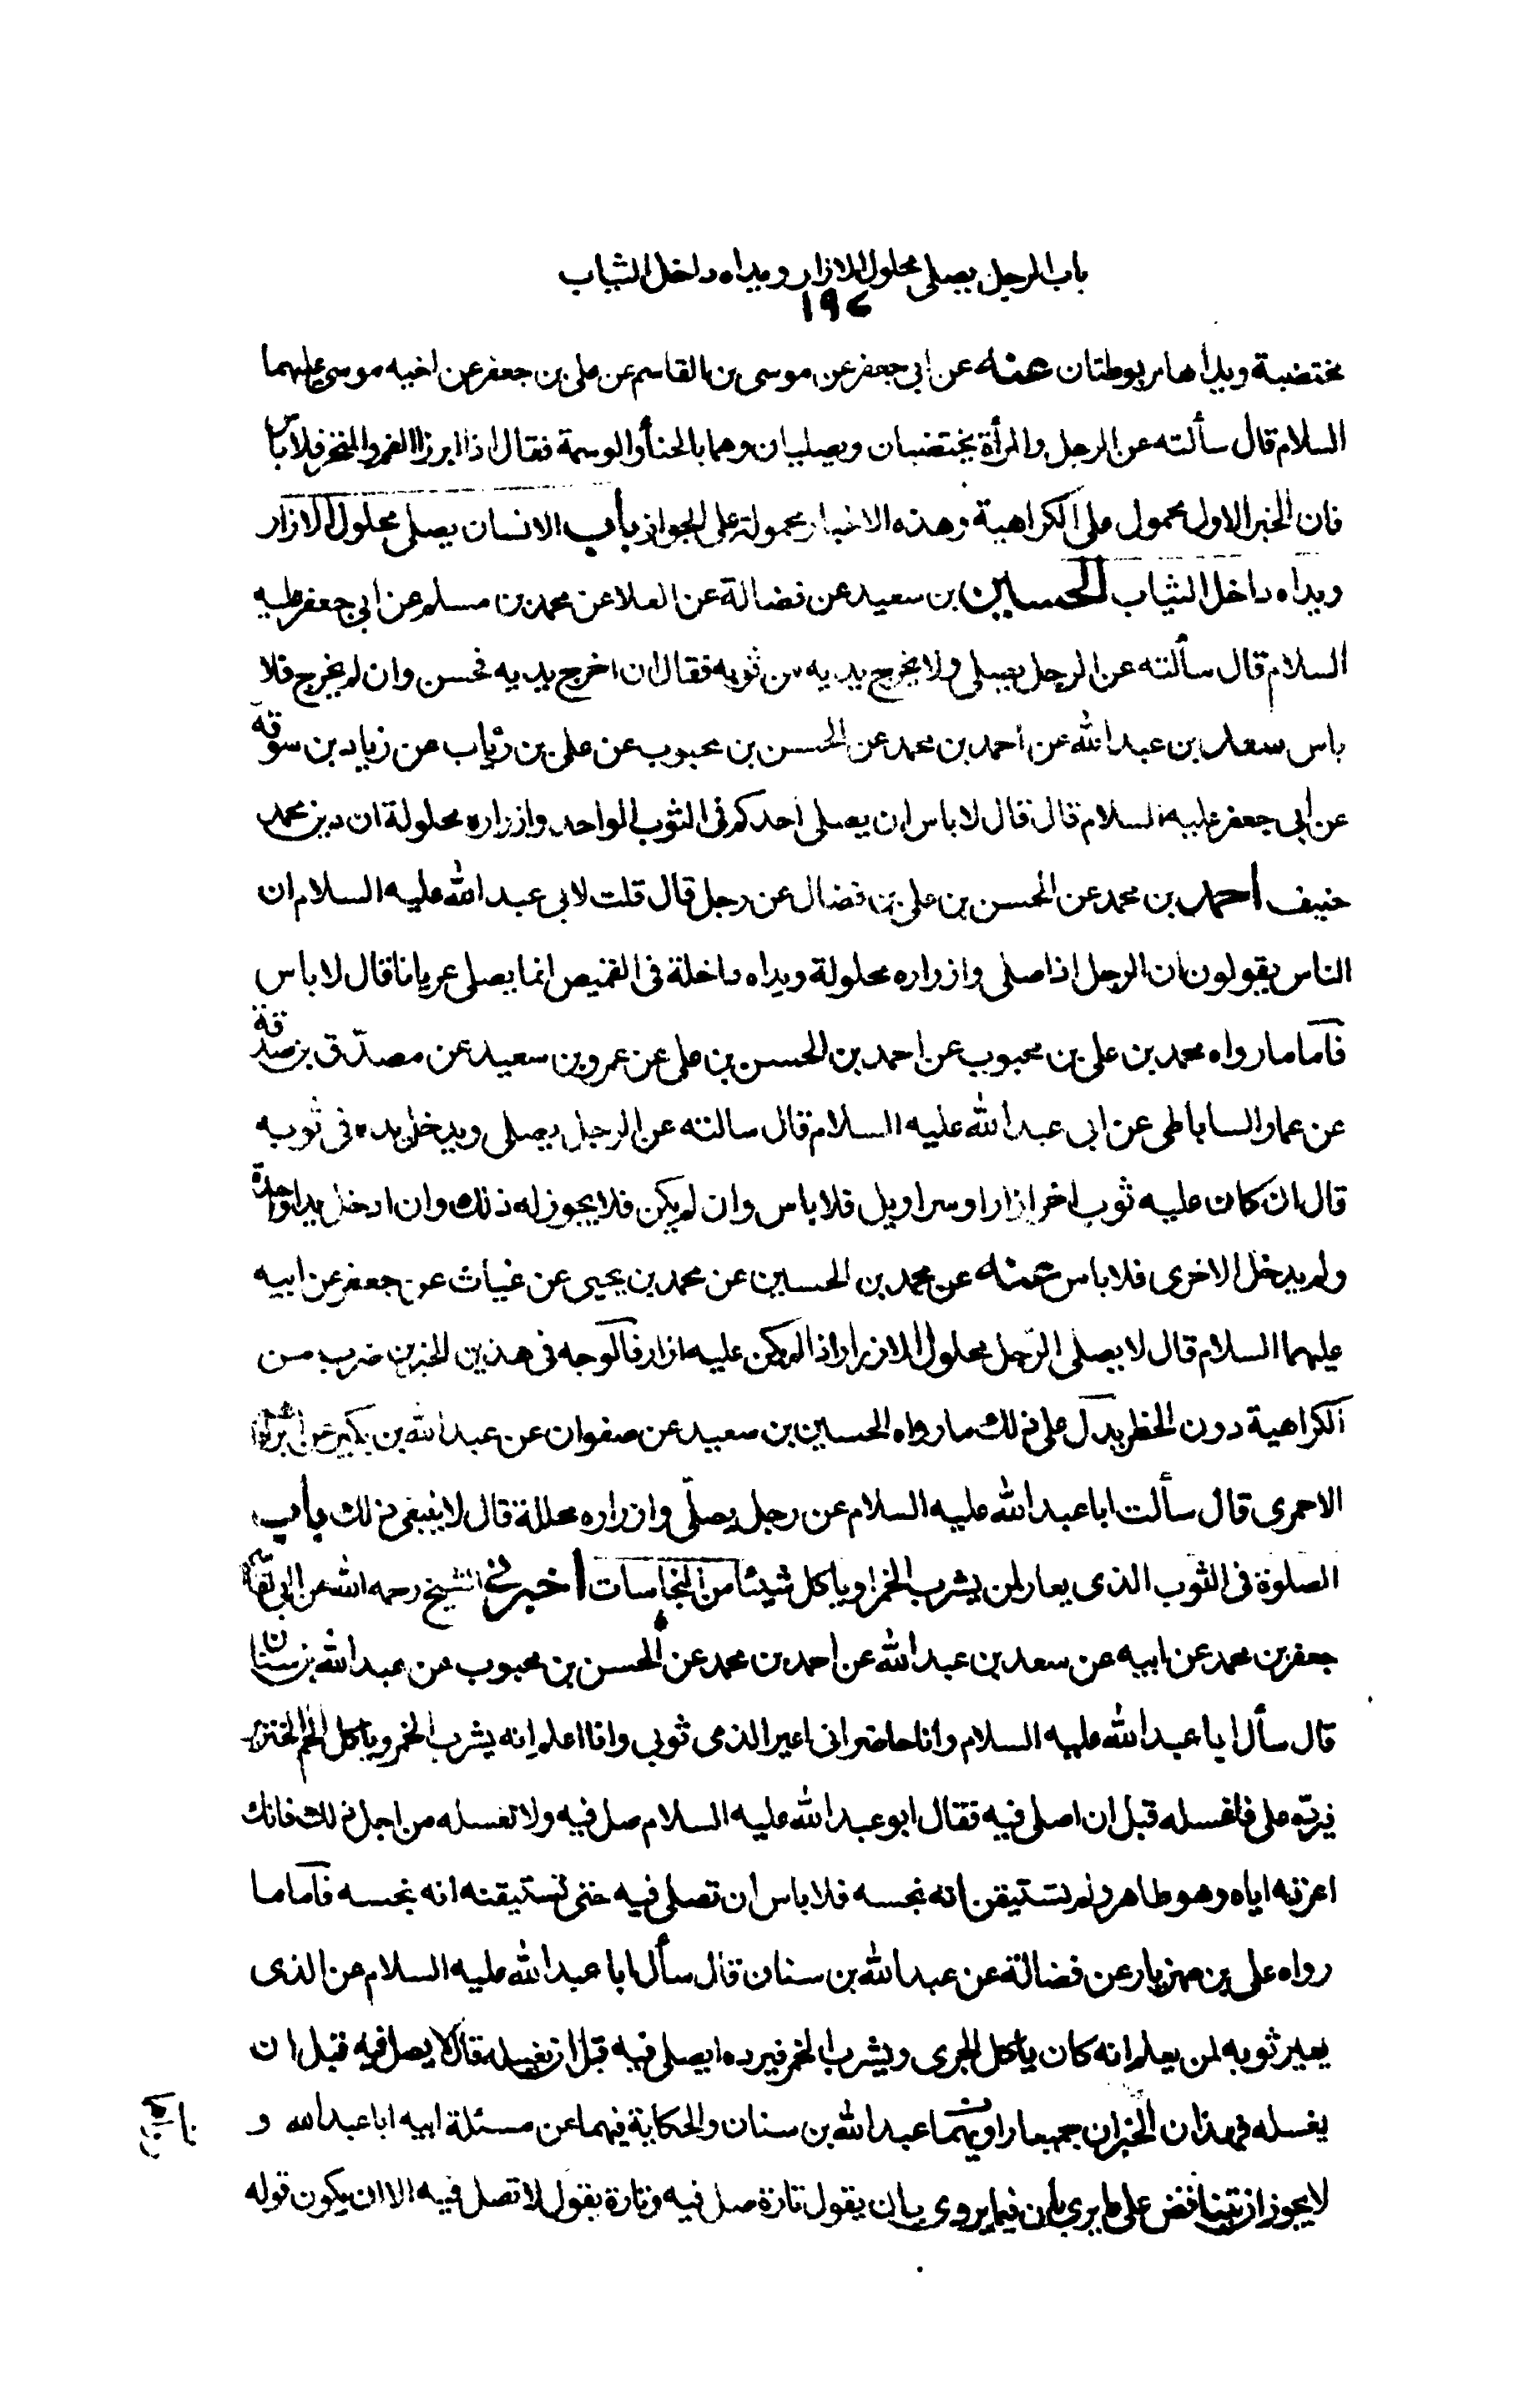 باب الرجل يصلى محلول الازار ويداه داخل الثياب
١٩٤
مختضبة ويداها مربوطتان عنه عن ابى جعفر عن موسى بن القاسم عن على بن جعفر عن اخيه موسى عليهما
السلام قال سألته عن الرجل والمرأة يختضبان ويصليان وهما بالحنأ والوسمة فقال اذا ابرزا الفم والمنخر فلا باس
فان الخبر الاول محمول على الكراهية وهذه الاخبار محمولة على الجواز باب الانسان يصلى محلول الازار
ويداه داخل الثياب الحسين بن سعيد عن فضالة عن العلا عن محمد بن مسلم عن ابى جعفر عليه
السلام قال سألته عن الرجل يصلى ولا يخرج يديه من ثوبه فقال ان اخرج يديه فحسن وان لم يخرج فلا
باس سعد بن عبد الله عن احمد بن محمد عن الحسن بن محبوب عن على بن رئاب عن زياد بن سوقة
عن ابى جعفر عليه السلام قال قال لا باس ان يصلى احدكم فى الثوب الواحد وازراره محلولة ان دين محمد
حنيف احمد بن محمد عن الحسن بن على بن فضال عن رجل قال قلت لابى عبد الله عليه السلام ان
الناس يقولون ان الرجل اذا صلى وازراره محلولة ويداه داخلة فى القميص انما يصلى عريانا قال لا باس
فاما ما رواه محمد بن على بن محبوب عن احمد بن الحسن بن على عن عمرو بن سعيد عن مصدق بن صدقة
عن عمار الساباطى عن ابى عبد الله عليه السلام قال سالته عن الرجل يصلى ويدخل يده فى ثوبه
قال ان كان عليه ثوب اخر ازار او سراويل فلا باس وان لم يكن فلا يجوز له ذلك وان ادخل يدا واحدة
ولم يدخل الاخرى فلا باس عنه عن محمد بن الحسين عن محمد بن يحيى عن غياث عن جعفر عن ابيه
عليهما السلام قال لا يصلى الرجل محلول الازرار اذا لم يكن عليه ازار فالوجه فى هذين الخبرين ضرب من
الكراهية دون الحظر يدل على ذلك ما رواه الحسين بن سعيد عن صفوان عن عبد الله بن بكير عن ابراهيم
الاحمرى قال سألت ابا عبد الله عليه السلام عن رجل يصلى وازراره محللة قال لا ينبغى ذلك باب
الصلوة فى الثوب الذى يعار لمن يشرب الخمر او ياكل شيئا من النجاسات اخبرنى الشيخ رحمه الله عن ابى القاسم
جعفر بن محمد عن ابيه عن سعد بن عبد الله عن احمد بن محمد عن الحسن بن محبوب عن عبد الله بن سنان
قال سأل ابا عبد الله عليه السلام وانا حاضر انى اعير الذمى ثوبى وانا اعلم انه يشرب الخمر وياكل لحم الخنزير
فيرده على فاغسله قبل ان اصلى فيه فقال ابو عبد الله عليه السلام صل فيه ولا تغسله من اجل ذلك فانك
اعرته اياه وهو طاهر ولم تستيقن انه نجسه فلا باس ان تصلى فيه حتى تستيقنه انه نجسه فاما ما
رواه على بن مهزيار عن فضالة عن عبد الله بن سنان قال سأل ابا عبد الله عليه السلام عن الذى
يعير ثوبه لمن يعلم انه كان ياكل الجرى ويشرب الخمر فيرده ايصلى فيه قبل ان يغسله قال لا يصل فيه قبل ان
يغسله فهذان الخبران جميعا راويهما عبد الله بن سنان والحكاية فيهما عن مسئلة ابيه ابا عبد الله و
لا يجوز ان يتناقض على ما يرى بان فيما يروى بان يقول تارة صل فيه وتارة يقول لا تصل فيه الا ان يكون قوله